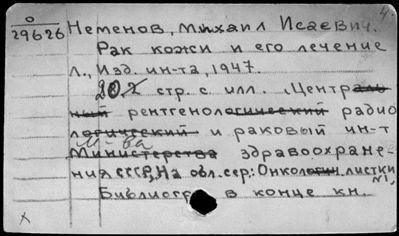 4.
0
29626 Неменов, Михаил Исаевич.
Рак кожи и его лечение
Л., Изд. ин-та, 1947.
202 стр. с илл. (Централь
ный рентгенологический радио
логический и раковый ин-т
М-ва
Министерства здравоохране-
ния СССР) На обл. сер: Онкологич. листки
№1,
Библиогр в конце кн.
х